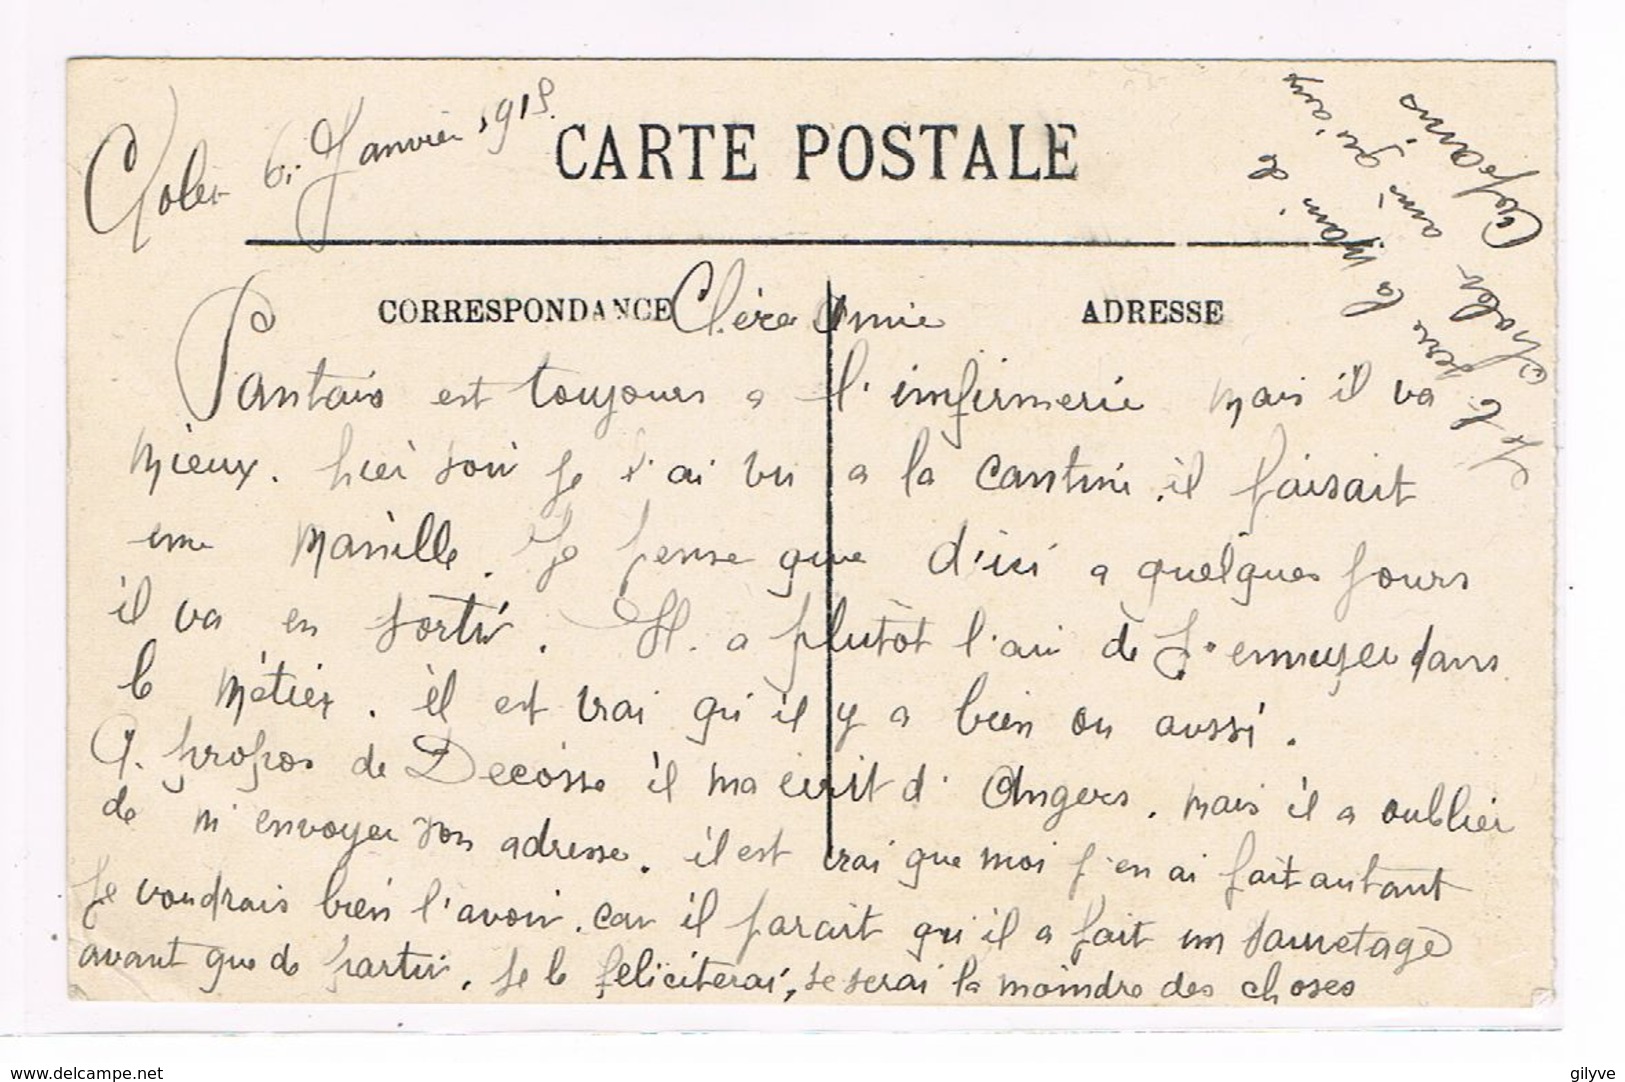 6. Janvier 1915.
CARTE POSTALE
CORRESPONDANCE
ADRESSE
Chère Amie
Pantais est toujours a l'infirmerie mais il va
mieux. hier soir je l'ai vu a la cantine. il faisait
une manille. Je pense que d'ici a quelques jours
il va en sortir. Il a plutôt l'air de s'ennuyer dans
le métier. il est vrai qu'il y a bien ou aussi.
A. propos de Decosse il ma ecrit d'Angers. mais il a oublier
de m'envoyer son adresse. il est vrai que moi j'en ai fait autant
Je voudrais bien l'avoir. car il parait qu'il a fait un sauvetage
avant que de partir. je le feliciterai, se serai la moindre des choses
Je te serre la main de
ami qu'aux
www.delcampe.net
gilyve